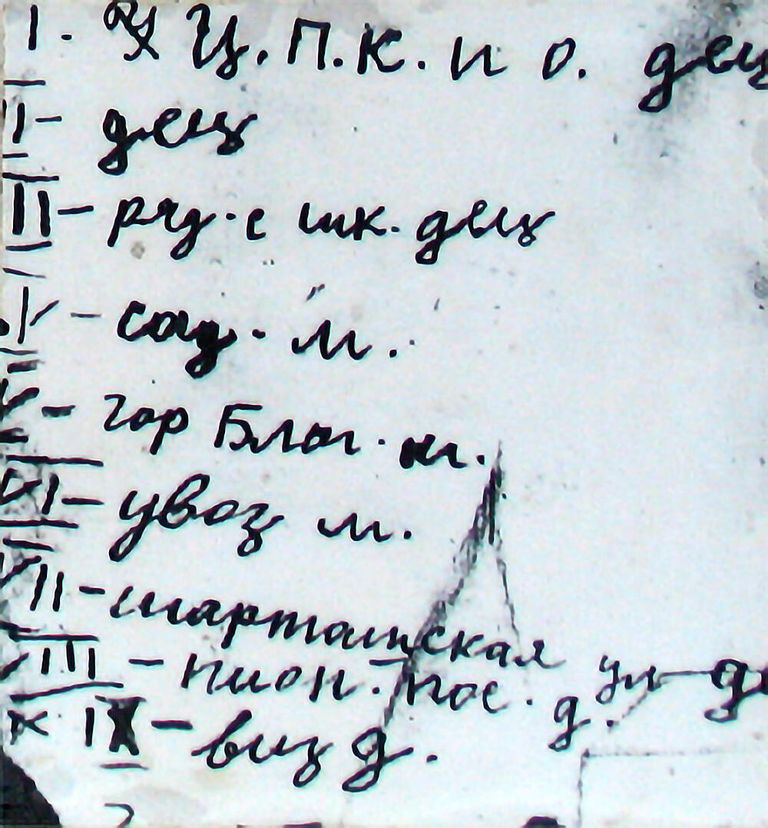 I. Ц. П. К. и о. дец
II - дец
III - ряд. с шк. дец
IV - сад. м.
V - гор Благ. м.
VI - увоз м.
VII - шарташская ул д
VIII - пион. пос. д.
IX - виз д.